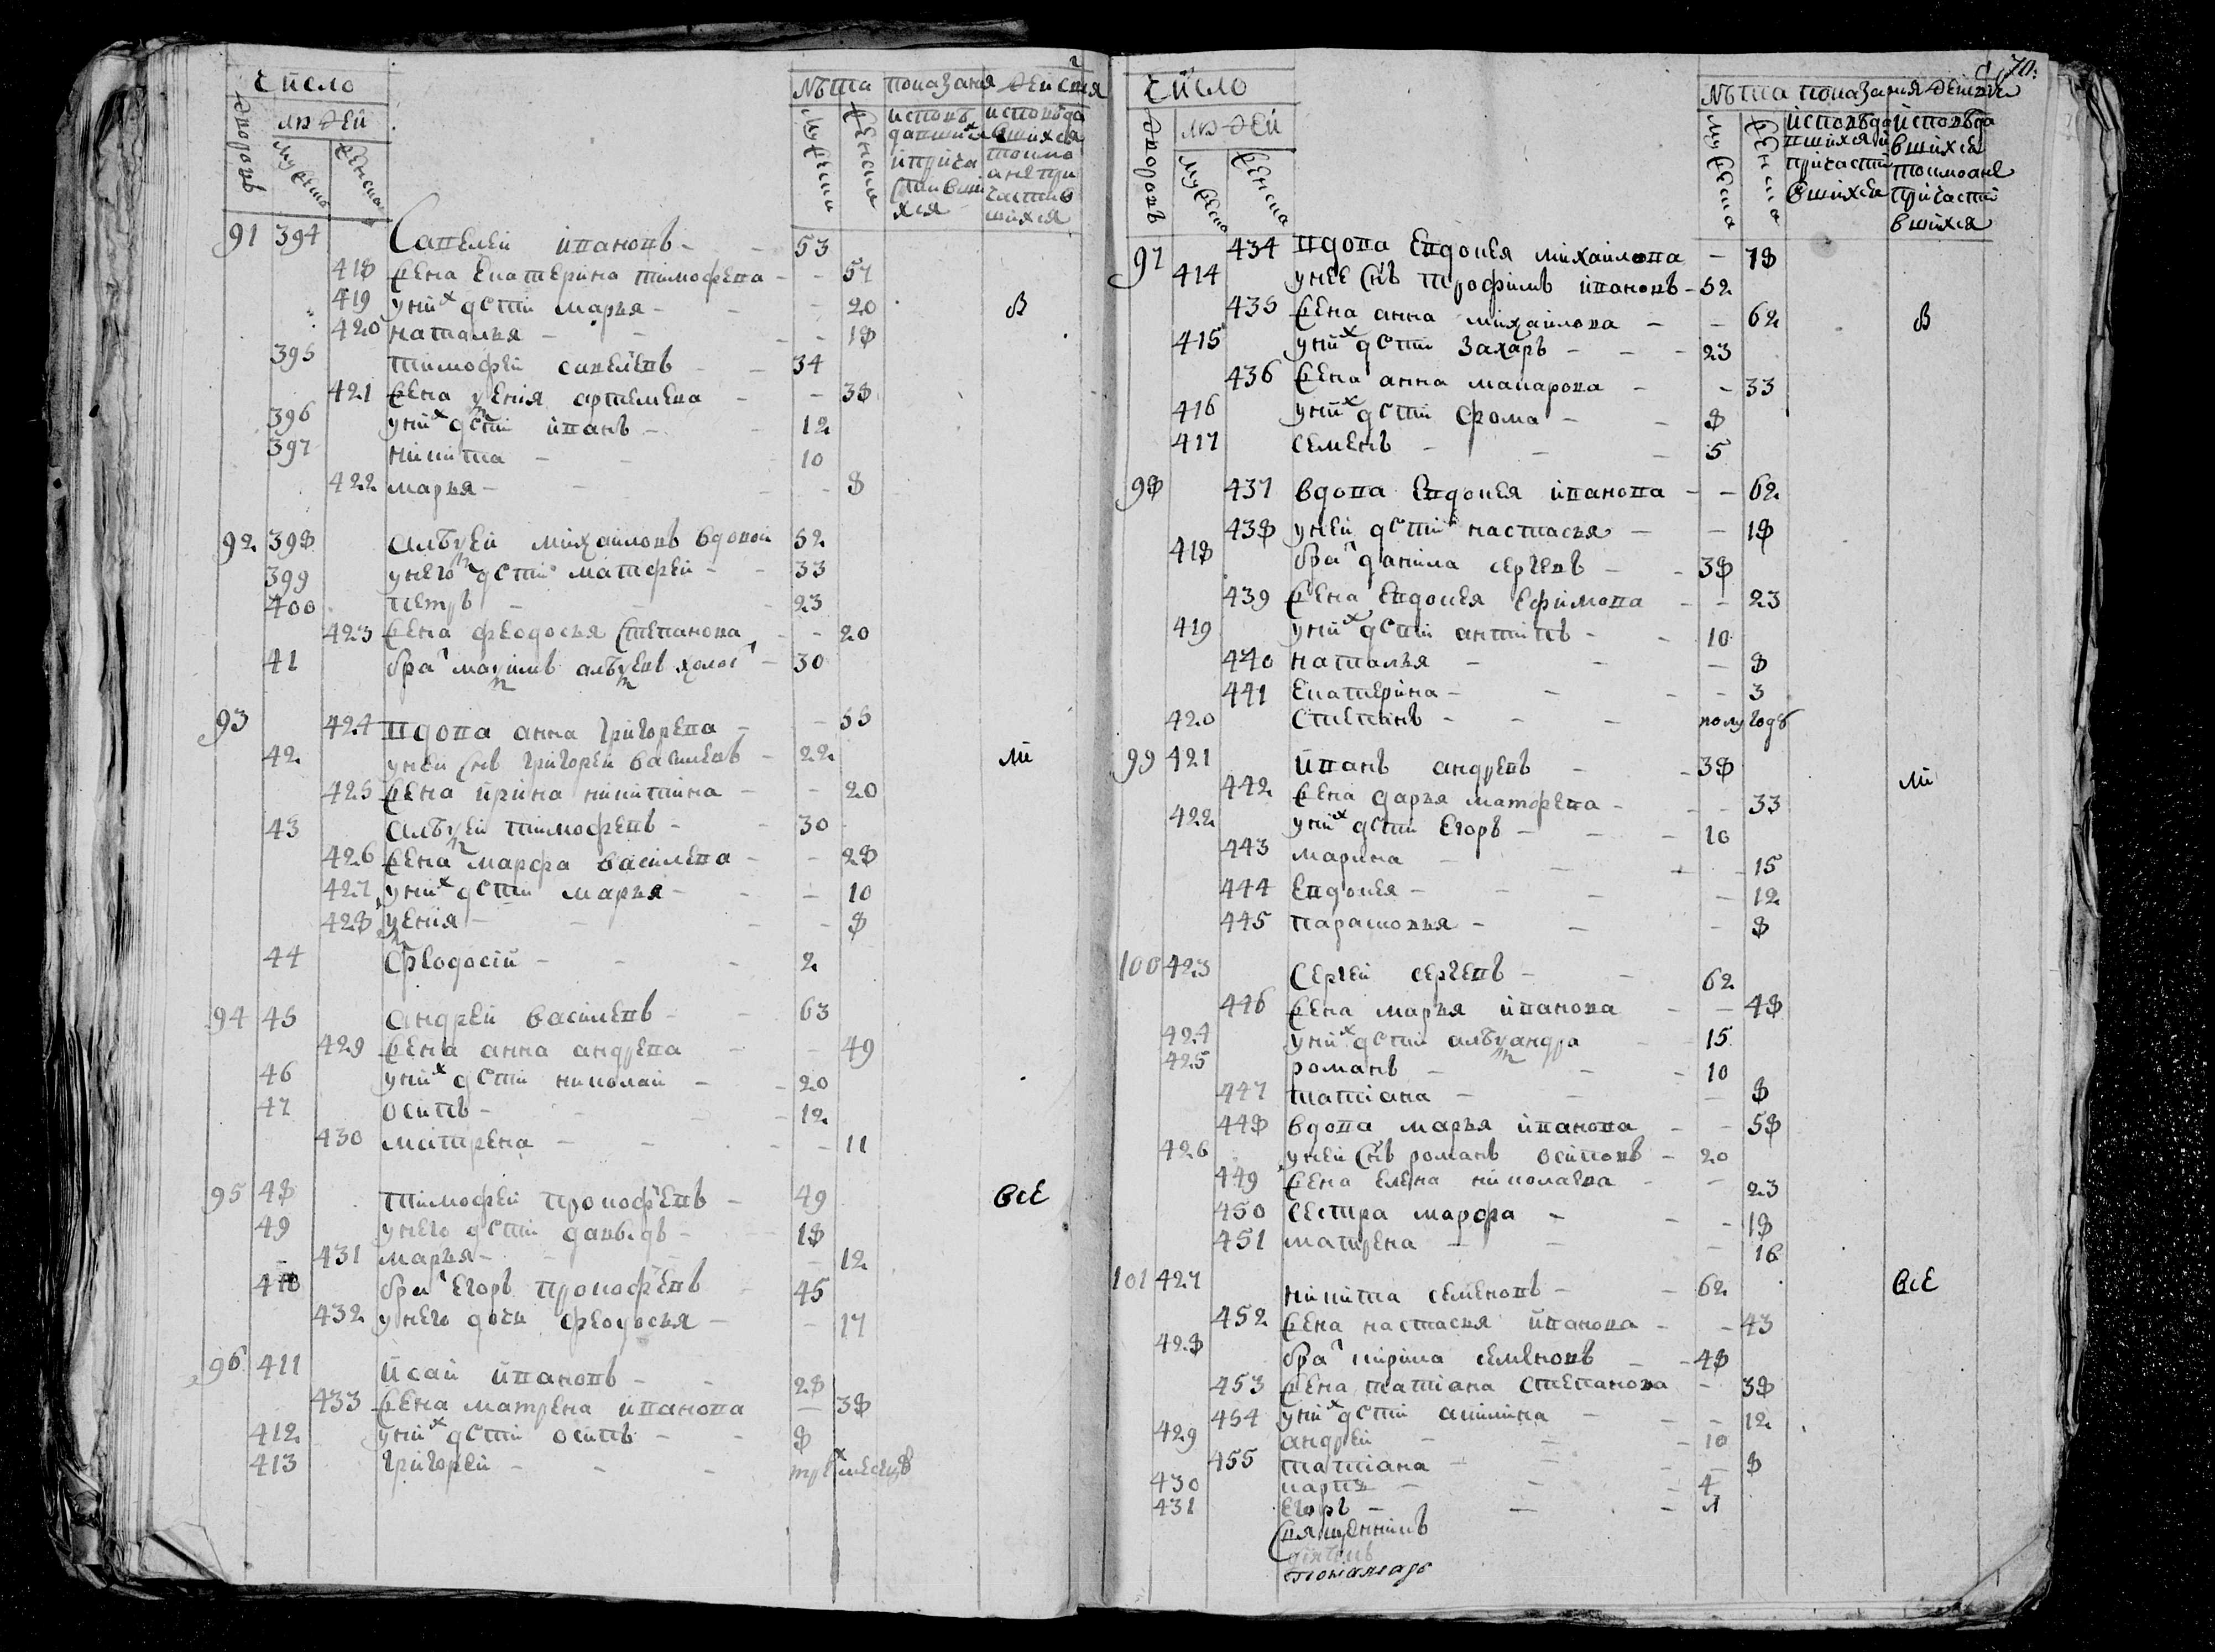 Число
людей
дворовъ
мужеска
женска
лѣта
мужеска
женска
показания действа
исповѣдавшихся и причастившихся
исповѣдавшихся токмо а не причастившихся
91 394 Савелей ивановъ - - 53
418 жена екатерина тимофева - - 57
419 у нихъ дѣти марья - - 20 в
420 наталья - - 18
395 тимофей савелевъ - - 34
421 жена ѯения артемева - - 38
396 у нихъ дѣти иванъ - - 12
397 никита - - 10
422 марья - - 8
92 398 алѣѯей михайловъ вдовой 52
399 у него дѣти матфей - - 33
400 петръ - - 23
423 жена феодосья степанова - - 20
41 братъ маѯимъ алѣѯевъ холостъ - 30
93 424 вдова анна григорева - - 55
42 у ней снъ григорей василевъ - 22 ми
425 жена ирина никитина - - 20
43 алѣѯей тимофевъ - - 30
426 жена марфа василева - - 28
427 у нихъ дѣти марья - - 10
428 ѯения - - 8
44 феодосий - - 2
94 45 андрей василевъ - - 63
429 жена анна андрева - - 49
46 у нихъ дѣти николай - - 20
47 осипъ - - 12
430 матрена - - 11
95 48 тимофей прокофевъ - 49 все
49 у него дѣти давыдъ - - 18
431 марья - - 12
410 братъ егоръ прокофевъ 45
432 у него дочь феодосья - - 17
96 411 исай ивановъ - - 28
433 жена матрена иванова - 38
412 у нихъ дѣти осипъ - - 8
413 григорей - - трехъ месецовъ
70.
Число
людей
дворовъ
мужеска
женска
лѣта
мужеска
женска
показания действа
исповѣдавшихся и причастившихся
исповѣдавшихся токмо а не причастившихся
97 434 вдова евдокея михайлова - 78
414 у нее снъ трофимъ ивановъ - 52
435 жена анна михайлова - - 62 в
415 у нихъ дѣти захаръ - - - 23
436 жена анна макарова - - 33
416 у нихъ дѣти фома - - 8
417 семенъ - - - 5
98 437 вдова евдокея иванова - - 62
438 у ней дѣти настасья - - 18
418 братъ данила сергевъ - - 38
439 жена евдокея ефимова - - 23
419 у нихъ дѣти антипъ - - 10
440 наталья - - - 8
441 екатерина - - - 3
420 степанъ - - - полугодъ
99 421 иванъ андревъ - - 38
442 жена дарья матфева - - - 33 ми
422 у нихъ дѣти егоръ - - - 10
443 марина - - - 15
444 евдокея - - - 12
445 парасковья - - - 8
100 423 Сергей сергевъ - - 62
446 жена марья иванова - - 48
424 у нихъ дѣти алѣѯандра - 15
425 романъ - - - 10
447 татиана - - - 8
448 вдова марья иванова - - 58
426 у ней снъ романъ осиповъ - 20
449 жена елена николаева - - 23
450 сестра марфа - - - 18
451 матрена - - 16
101 427 никита семеновъ - - 62 все
452 жена настасья иванова - - 43
428 братъ кирила семеновъ - - 48
453 жена татиана степанова - 38
454 у нихъ дѣти акилина - - - 12
429 андрей - - - 10
455 татиана - - - 8
430 карпъ - - - 4
431 егоръ - - - 1
Священникъ
диячокъ
пономарь